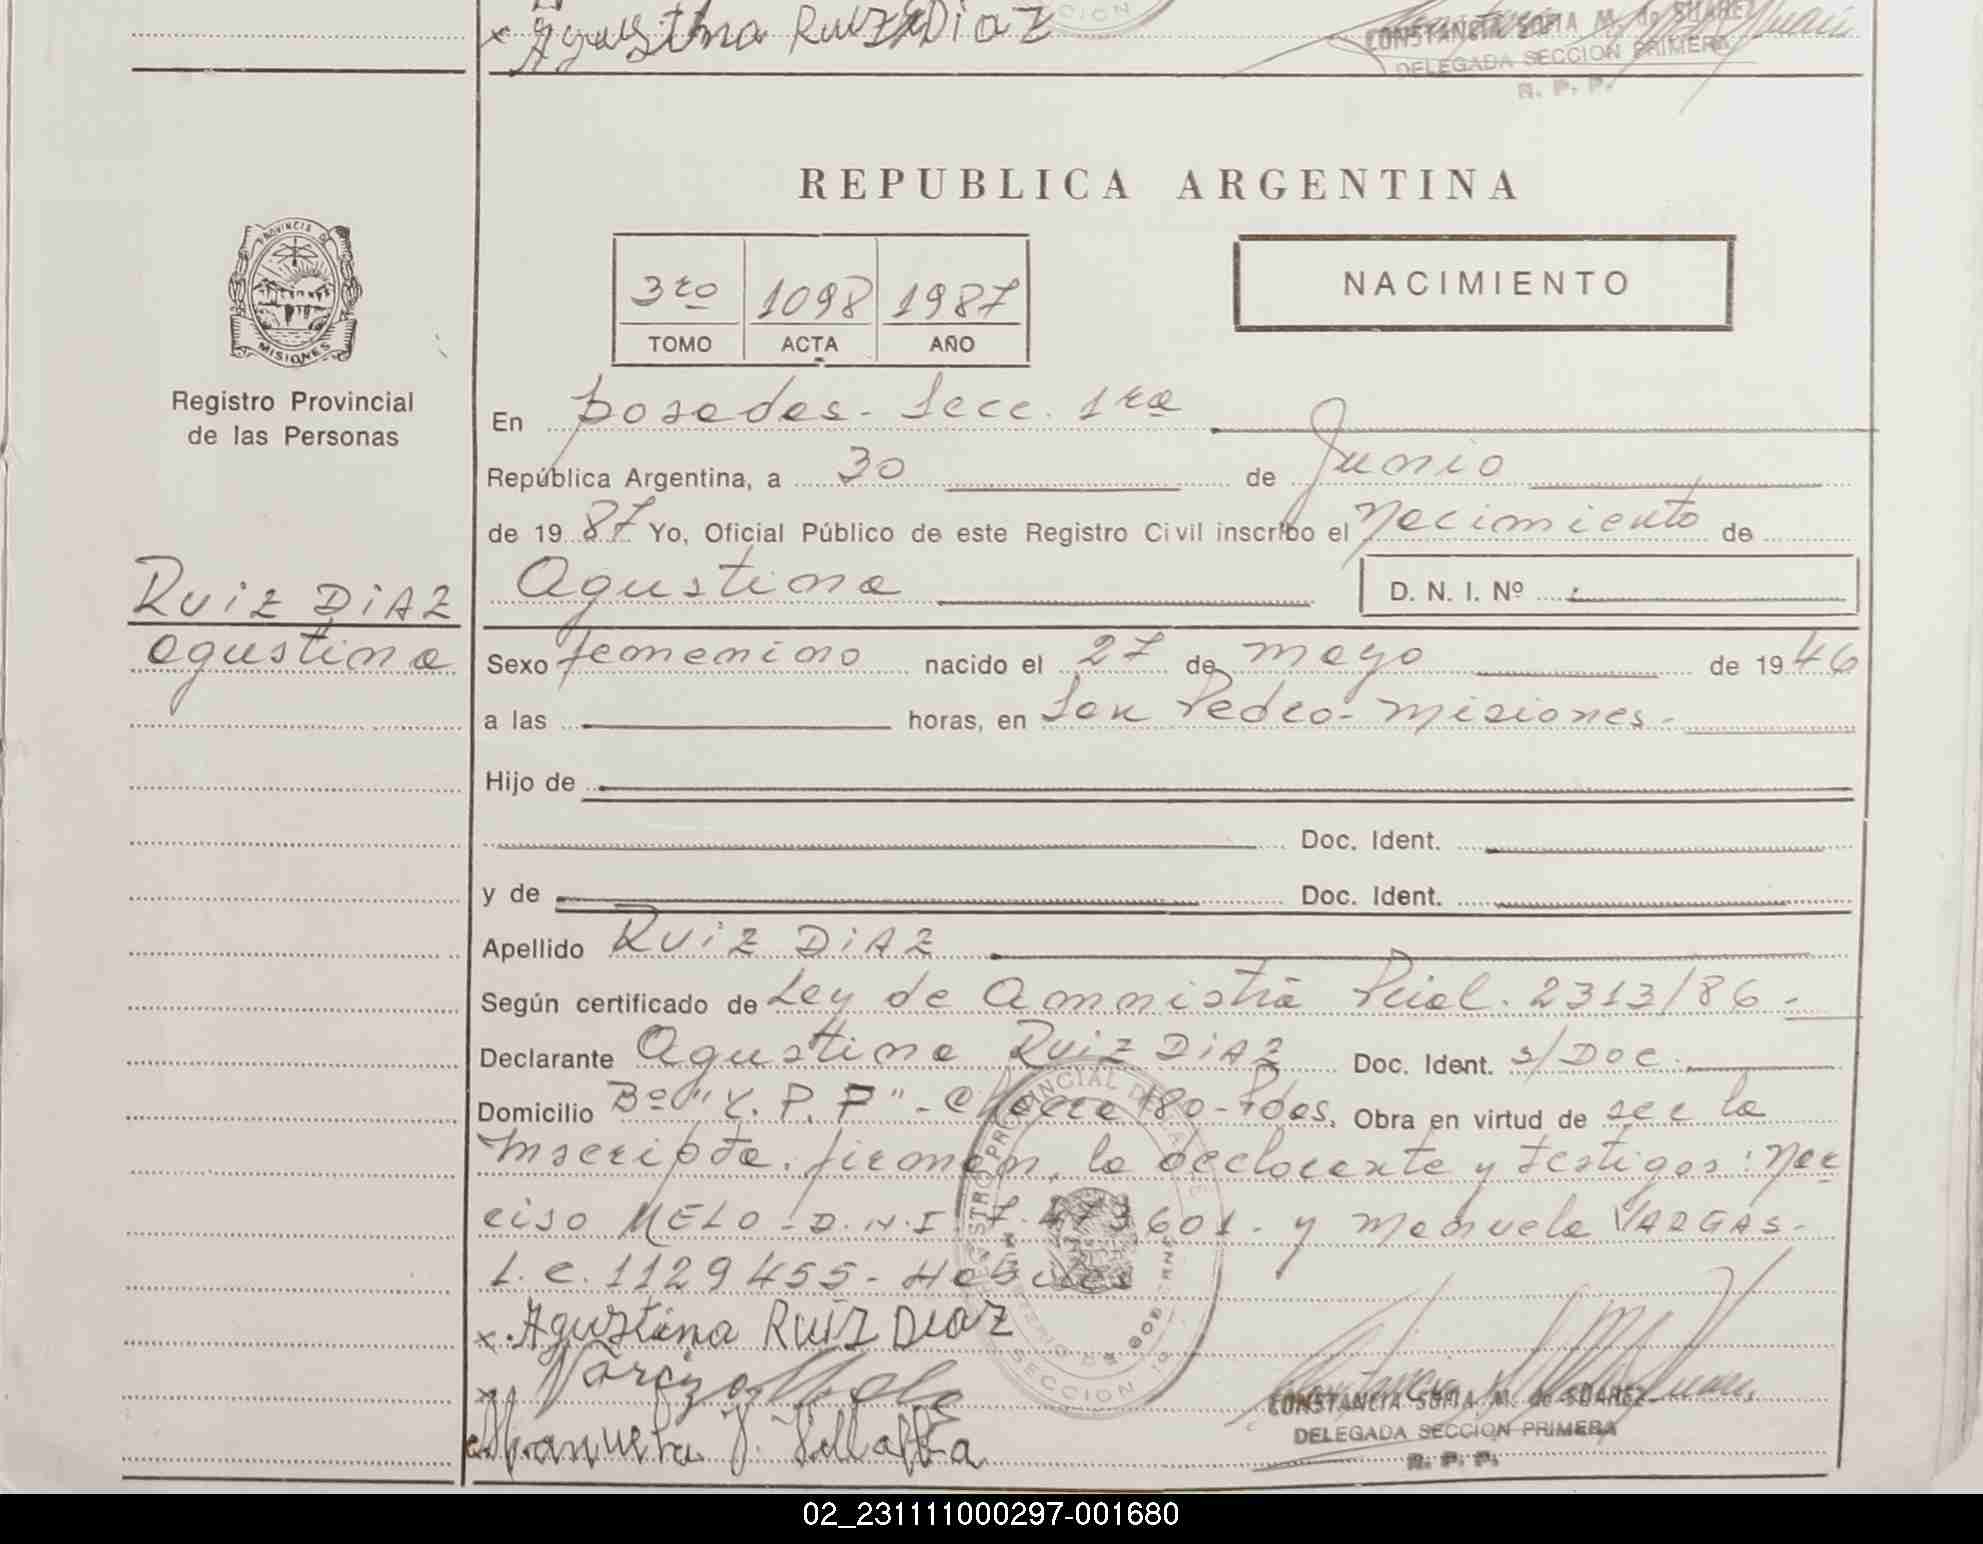 x Agustina Ruiz Diaz
CONSTANCIA SOFIA M. de SUAREZ
DELEGADA SECCION PRIMERA
R. P. P.
REPUBLICA ARGENTINA
PROVINCIA DE
MISIONES
3ro 1098 1987
TOMO ACTA AÑO
NACIMIENTO
Registro Provincial
de las Personas
En posadas - Secc. 1ra
República Argentina, a 30 de Junio
de 1987 Yo, Oficial Público de este Registro Civil inscribo el Nacimiento de
Agustina D. N. I. Nº
RUIZ DIAZ
Agustina
Sexo femenino nacido el 27 de mayo de 1946
a las horas, en San Pedro - Misiones.
Hijo de
Doc. Ident.
y de Doc. Ident.
Apellido RUIZ DIAZ
Según certificado de Ley de Amnistía Pcial. 2313/86.
Declarante Agustina RUIZ DIAZ Doc. Ident. s/Doc.
Domicilio Bº "Y.P.F" - Chacra 180 - Pdas. Obra en virtud de ser la
Inscripta. firman, la declarante y testigos: Nar
ciso MELO - D.N.I. 7.473601 - y Manuela VARGAS -
L.C. 1129455 - Habiles
x Agustina Ruiz Diaz
Narcizo Melo
Manuela V.
CONSTANCIA SOFIA M. de SUAREZ
DELEGADA SECCION PRIMERA
R. P. P.
02_231111000297-001680